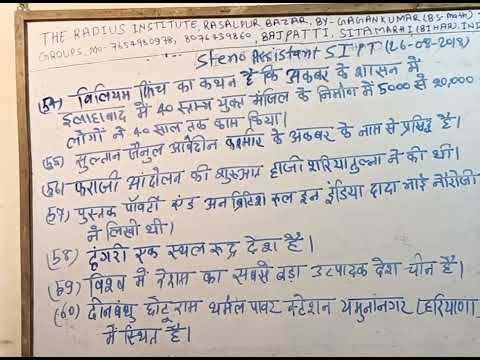 THE RADIUS INSTITUTE, RASALPUR BAZAR, BY- GAGAN KUMAR (BS-Math)
GROUPS, MO- 7654930978, 8076459860, BAJPATTI, SITAMARHI (BIHAR). IND
Steno Assistant SI PT (26-08-2018)
(54) विलियम फिंच का कथन है कि अकबर के शासन में
इलाहाबाद में 40 स्तम्भ युक्त मंजिल के निर्माण में 5000 से 20,000
लोगों ने 40 साल तक काम किया।
(55) सुल्तान जैनुल आबेदीन कश्मीर के अकबर के नाम से प्रसिद्ध है।
(56) फराजी आंदोलन की शुरुआत हाजी शरियातुल्ला ने की थी।
(57) पुस्तक पॉवर्टी एण्ड अनब्रिटिश रूल इन इंडिया दादा भाई नौरोजी
ने लिखी थी।
(58) हंगरी एक स्थल रुद्ध देश है।
(59) विश्व में रेशम का सबसे बड़ा उत्पादक देश चीन है।
(60) दीनबंधु छोटूराम थर्मल पावर स्टेशन यमुनानगर (हरियाणा)
में स्थित है।